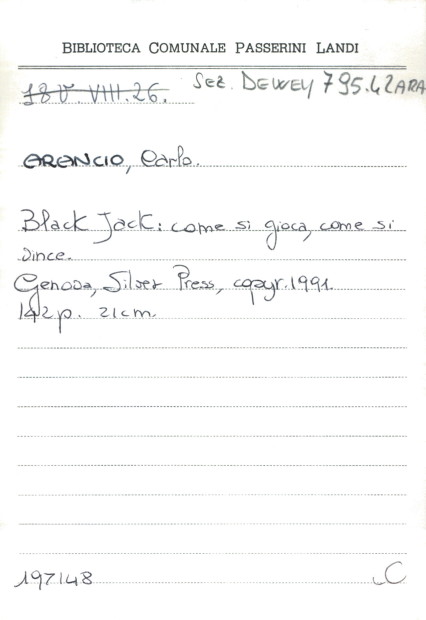 BIBLIOTECA COMUNALE PASSERINI LANDI
18 V. VIII.26. Sez. DEWEY 795.42ARA
ARANCIO, Carlo.
Black Jack: come si gioca, come si
vince.
Genova, Silver Press, copyr. 1991.
142 p. 21 cm.
197148 C